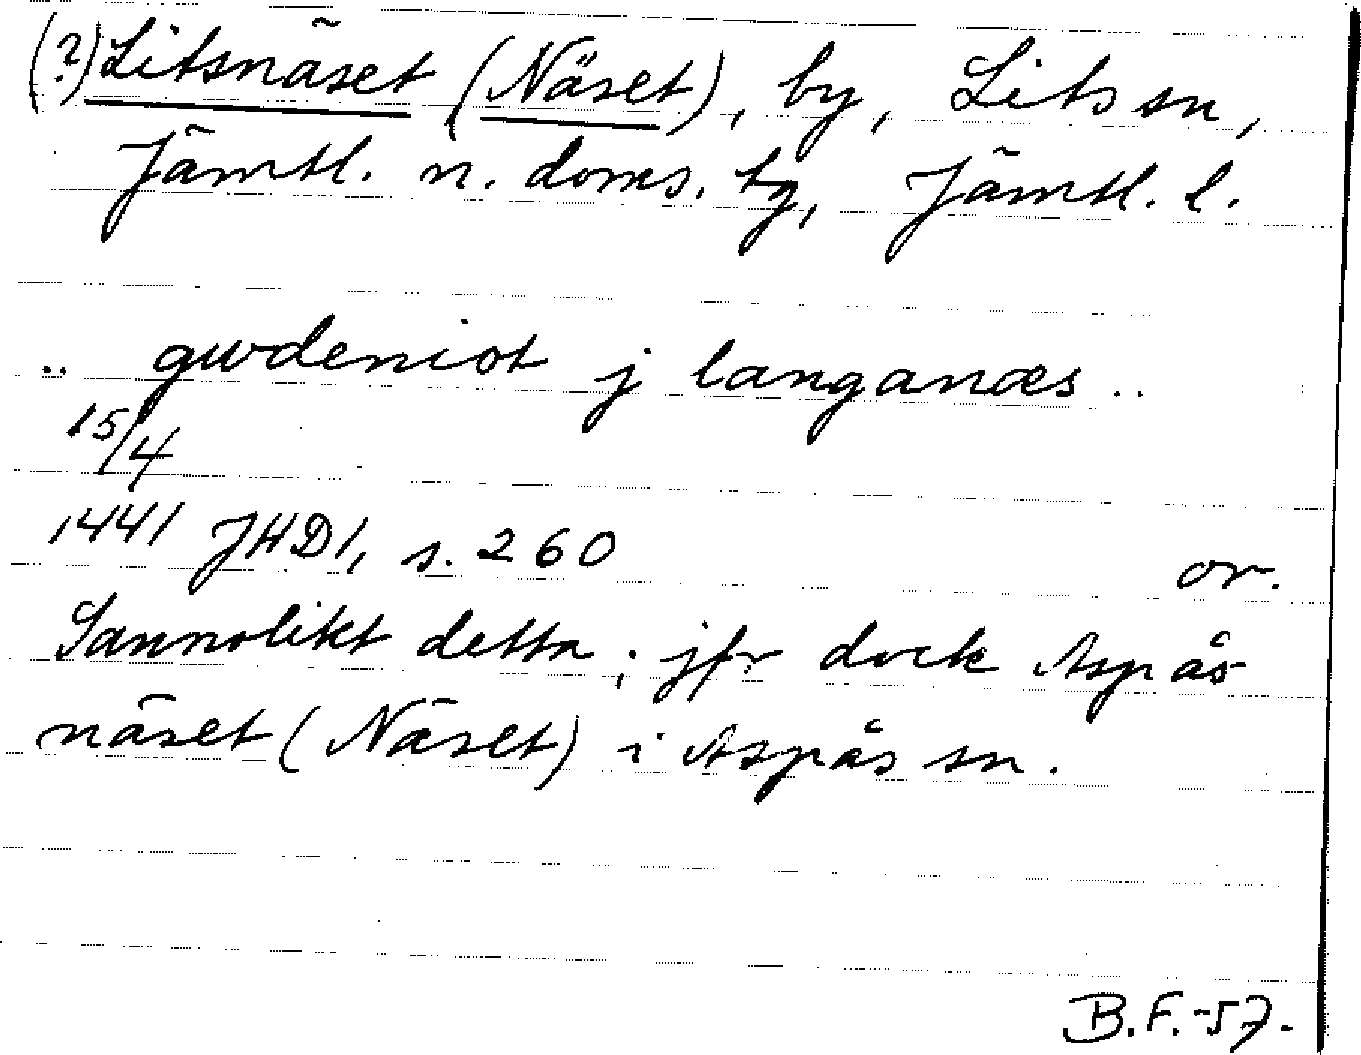 (?) Litsnäset (Näset), by, Lits sn,
Jämtl. n. doms. tg, Jämtl. l.
.. gwdeniot j langanæs ..
15/4
1441 JHD1, s. 260 or.
Sannolikt detta; jfr dock Aspås
näset (Näset) i Aspås sn.
B.F.-57.